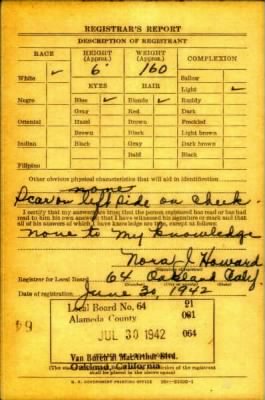 REGISTRAR'S REPORT
DESCRIPTION OF REGISTRANT
RACE HEIGHT (Approx.) WEIGHT (Approx.) COMPLEXION
6' 160
White ✓ Sallow
EYES HAIR Light ✓
Negro Blue ✓ Blonde ✓ Ruddy
Gray Red Dark
Oriental Hazel Brown Freckled
Brown Black Light brown
Indian Black Gray Dark brown
Bald Black
Filipino
Other obvious physical characteristics that will aid in identification
none
Scar on left side on cheek.
I certify that my answers are true; that the person registered has read or has had
read to him his own answers; that I have witnessed his signature or mark and that
all of his answers of which I have knowledge are true, except as follows:
none to my knowledge
Nora J Howard
Registrar for Local Board 64 Oakland Calif.
Date of registration June 30, 1942
Local Board No. 64 21
Alameda County 001
64
JUL 30 1942 064
Van Buren at MacArthur Blvd.
Oakland, California
(The of the registrant
shall be placed in the above space)
U. S. GOVERNMENT PRINTING OFFICE